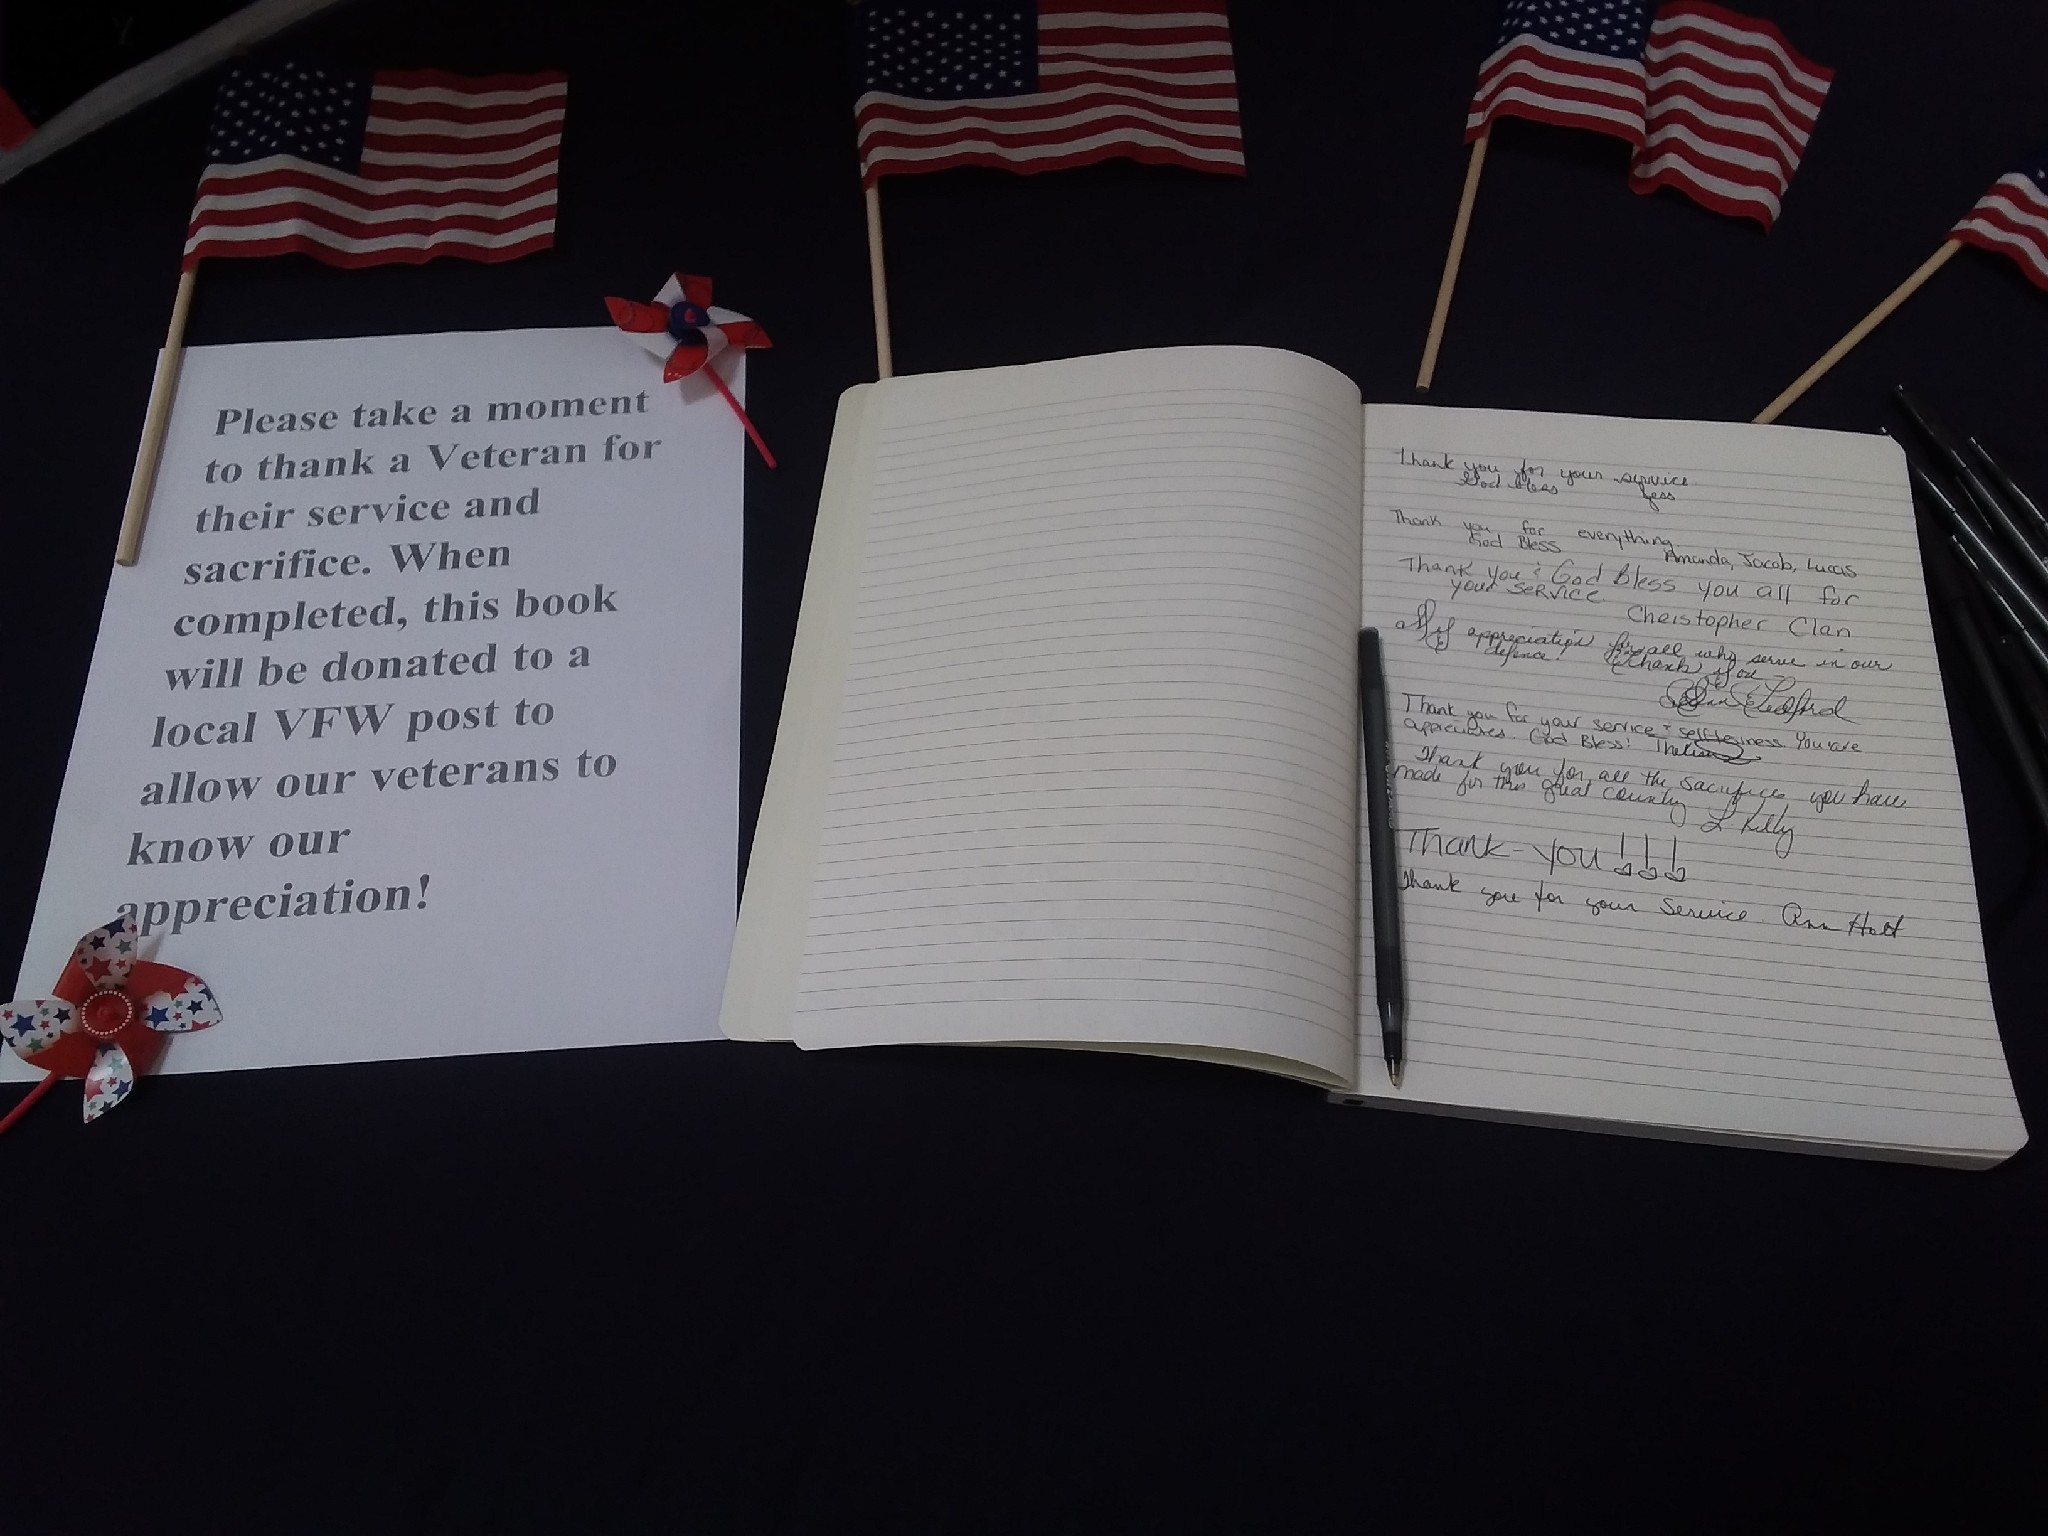 Please take a moment
to thank a Veteran for
their service and
sacrifice. When
completed, this book
will be donated to a
local VFW post to
allow our veterans to
know our
appreciation!
Thank you for your service
God Bless Jess
Thank you for everything.
God Bless Amanda, Jacob, Lucas
Thank you & God Bless you all for
your service
Christopher Clan
appreciation for all who serve in our
defence! Thank you
Ledford
Thank you for your service & selflessness. You are
appreciated. God Bless!
Thank you for all the sacrifices you have
made for this great country L. Kelly
Thank-you!!!
Thank you for your service Ann Holt